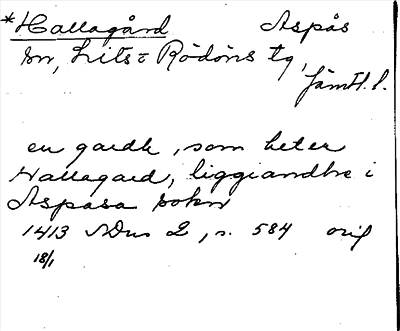 *Hallagård Aspås
sn, Lits o Rödöns tg,
Jämtl. l.
en gardh, som heter
Hallagard, liggiandhe i
Aspasa sokn
1413 NDn 2, s. 584 orig
18/1